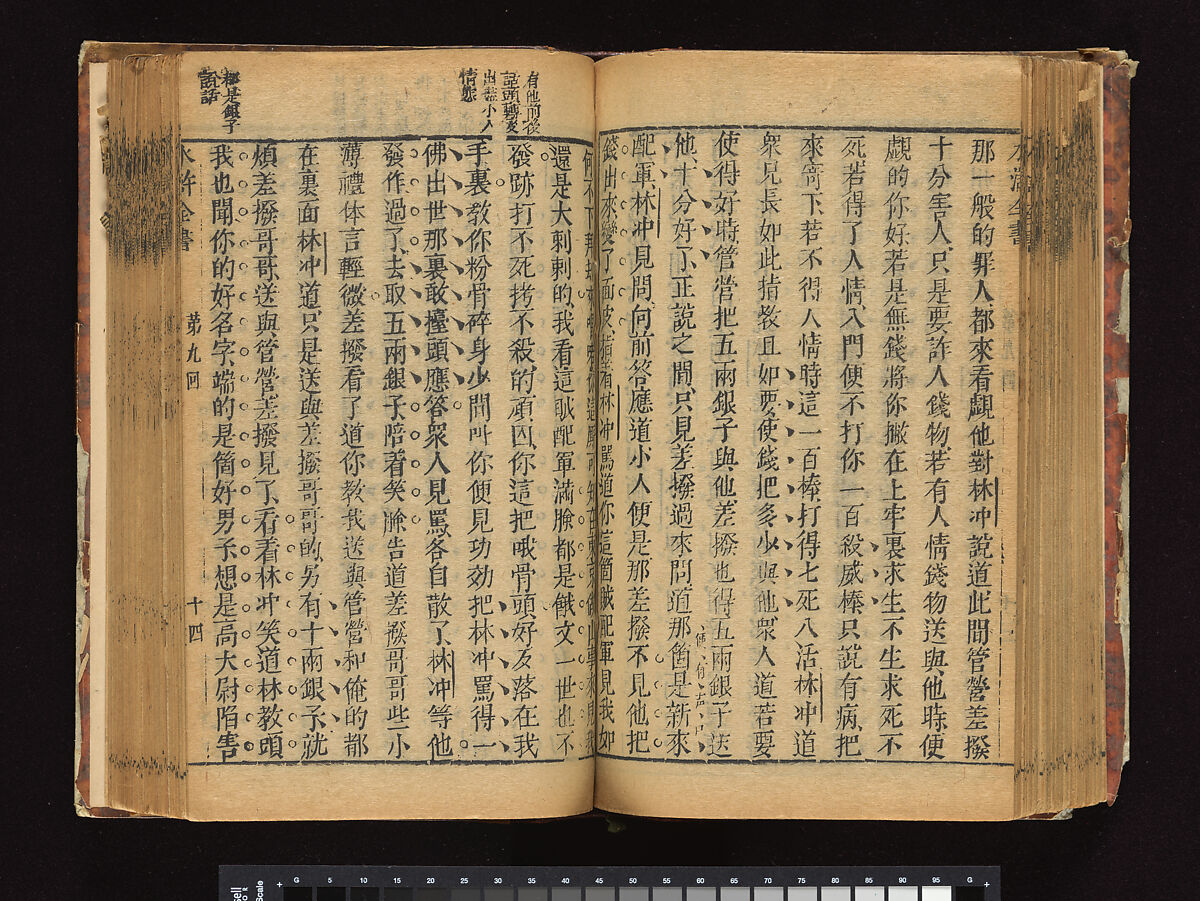 那一般的罪人都來看覷他對林冲說道此間管營差撥
十分害人只是要詐人錢物若有人情錢物送與他時便
覷的你好若是無錢將你撇在土牢裏求生不生求死不
死若得了人情入門便不打你一百殺威棒只說有病把
來寄下若不得人情時這一百棒打得七死八活林冲道
衆兄長如此指教且如要使錢把多少與他衆人道若要
使得好時管營把五兩銀子與他差撥也得五兩銀子送
他十分好了正說之間只見差撥過來問道那箇是新來
便有苦
配軍林冲見問向前答應道小人便是那差撥不見他把
錢出來變了面皮指着林冲罵道你這箇賊配軍見我如
何不下拜
還是大剌剌的我看這賊配軍滿臉都是餓文一世也不
發跡打不死拷不殺的頑囚你這把賊骨頭好歹落在我
手裏教你粉骨碎身少間叫你便見功効把林冲罵得一
佛出世那裏敢擡頭應答衆人見罵各自散了林冲等他
發作過了去取五兩銀子陪着笑臉告道差撥哥哥些小
薄禮休言輕微差撥看了道你教我送與管營和俺的都
在裏面林冲道只是送與差撥哥哥的另有十兩銀子就
煩差撥哥哥送與管營差撥見了看看林冲笑道林教頭
我也聞你的好名字端的是箇好男子想是高太尉陷害
有他前後
話頭轉變
出世小人
情態
都是銀子
說話
水滸全書
第九回
十四